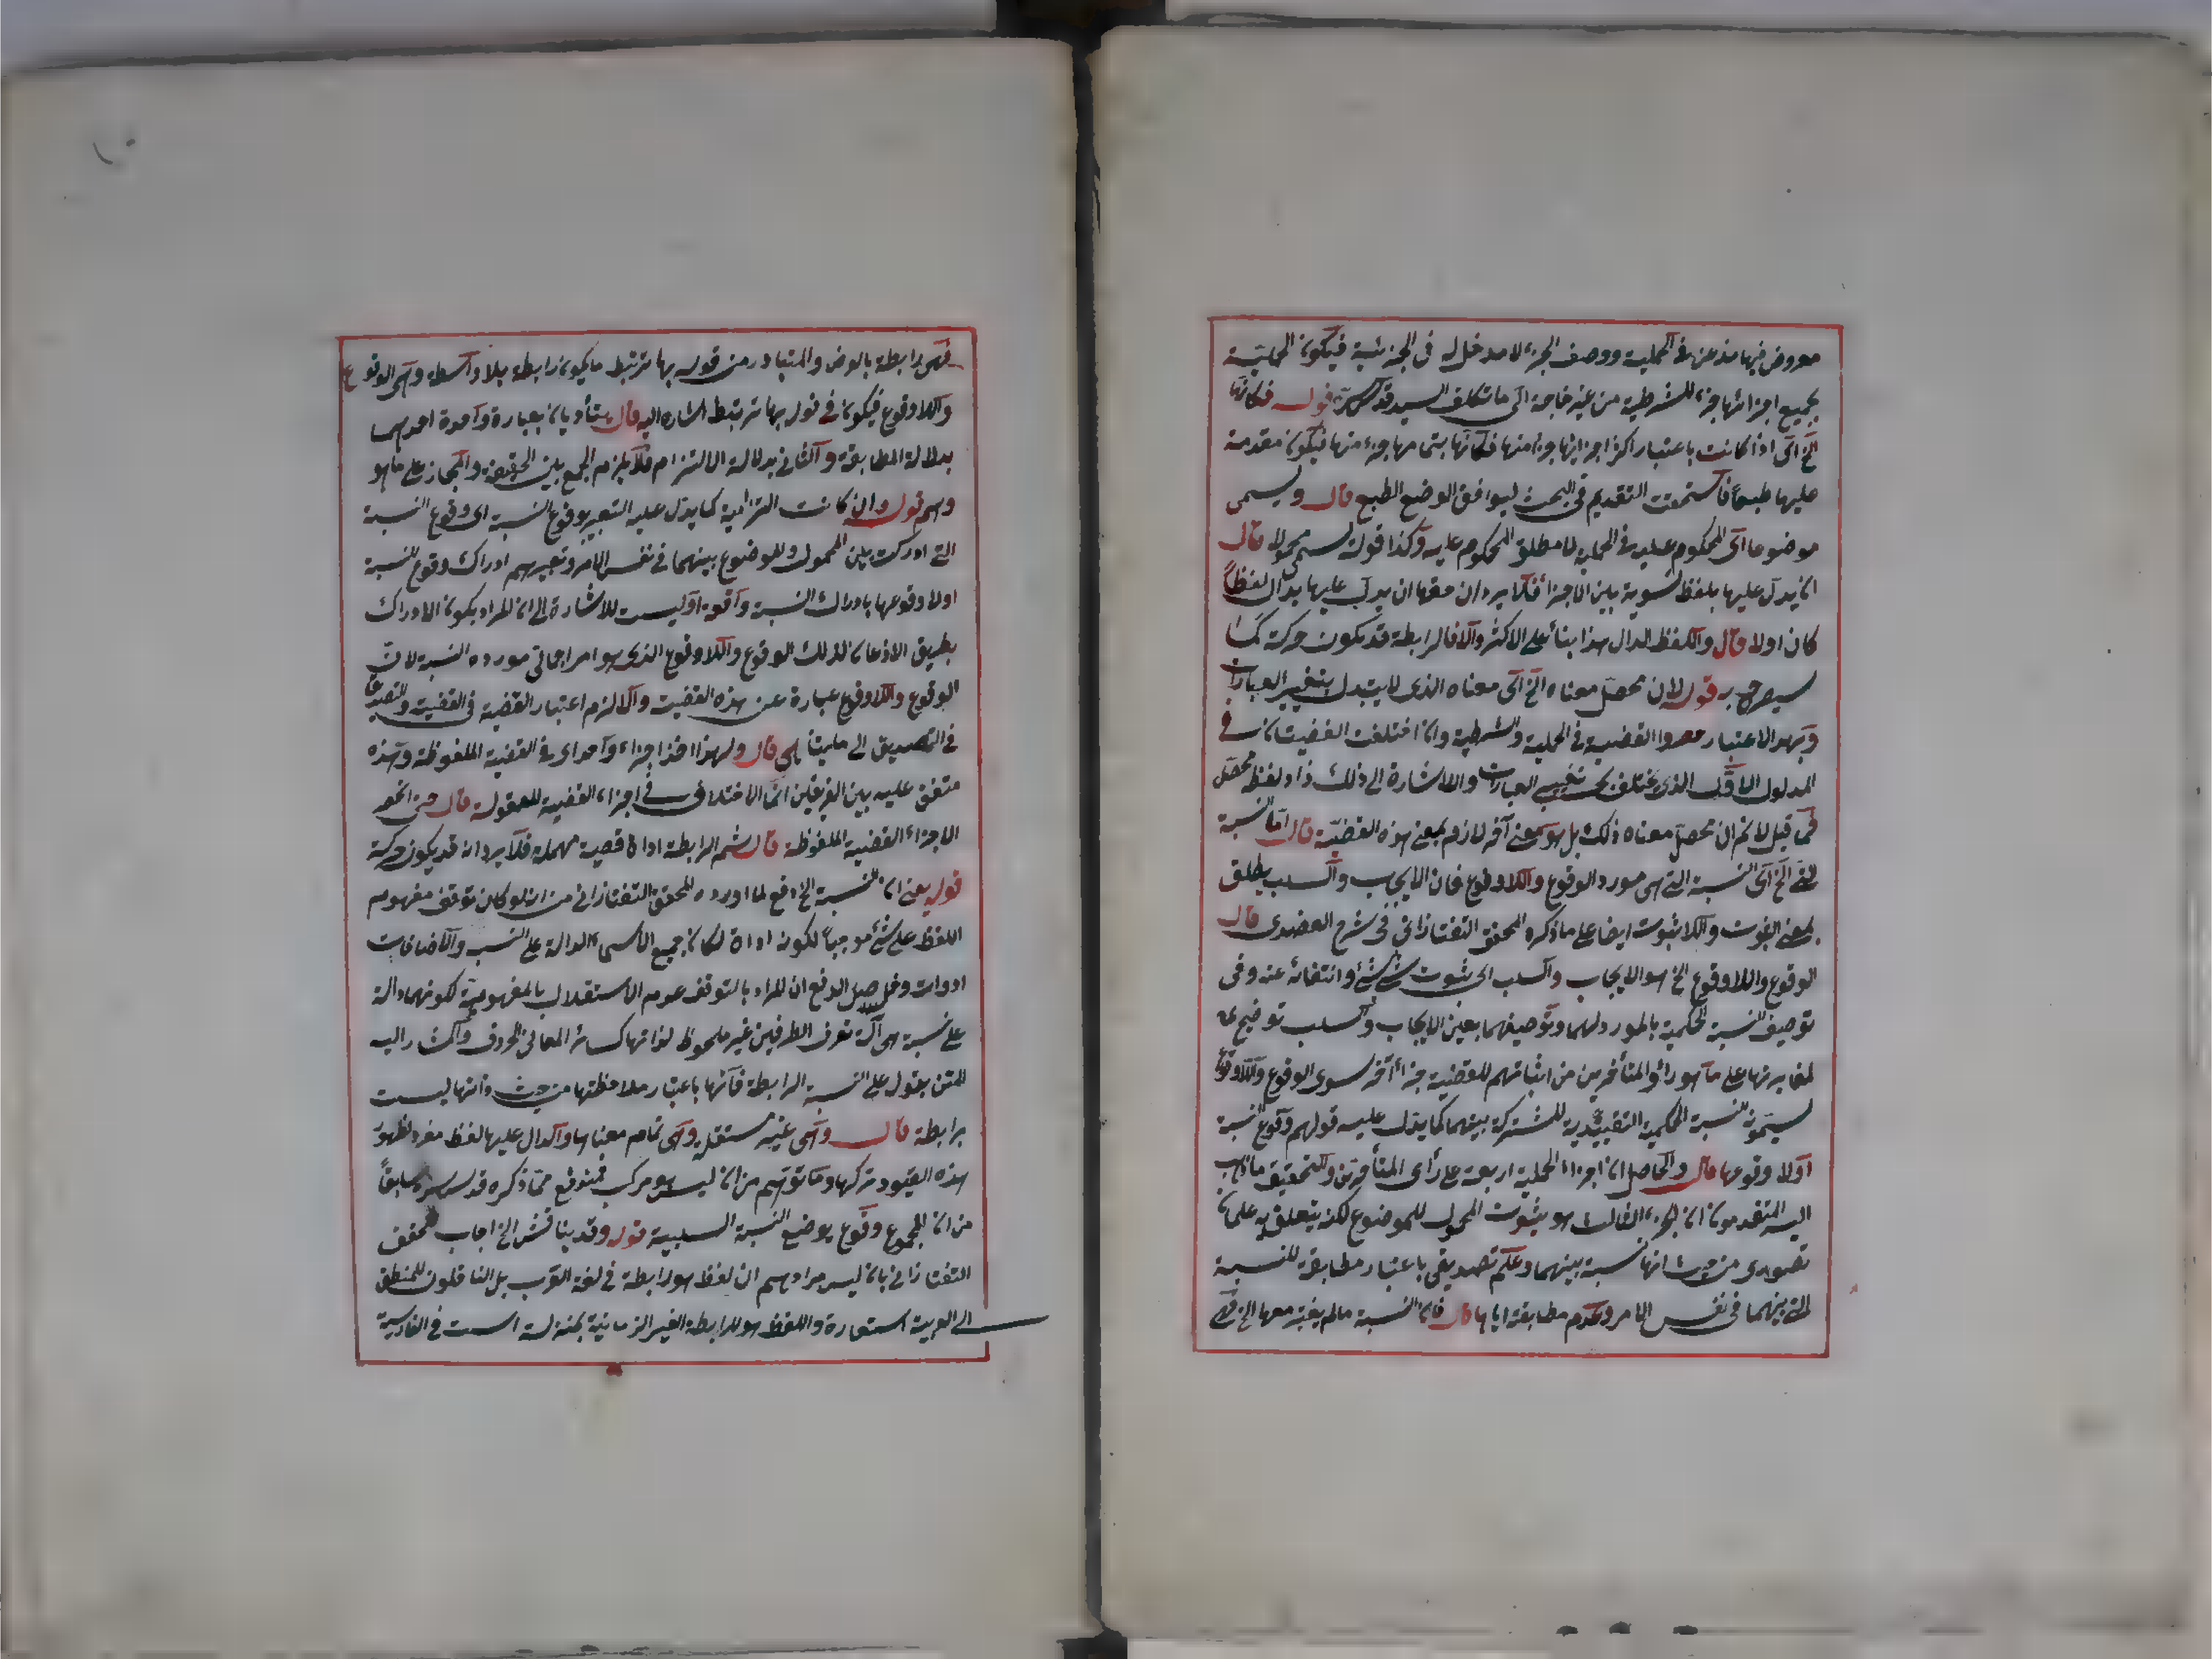 معروض فيها مذعن في الحملية ووصف الجزء لا مدخل له في الجزئية فيكون الحملية
بجميع اجزائها جزء للشرطية من غير حاجة الى ما تكلف السيد قدس سره قوله فكانها
الخ اى اذا كانت باعتبار اكثر اجزائها جزء منها فكانها بتمامها جزء منها فيكون مقدمة
عليها طبعا فاستحقت التقديم في البحث ليوافق الوضع الطبع قال ويسمى
موضوعا اى المحكوم عليه في الحملية لا مطلق المحكوم عليه وكذا قوله يسمى محمولا قال
ان يدل عليها بلفظ تسوية بين الاجزاء فلا يرد ان حقها ان يدل عليها بدال لفظا
كان اولا قال واللفظ الدال هذا بناء على الاكثر والا فالرابطة قد يكون حركة كما
سيصرح به قوله لان محصل معناه الخ اى معناه الذى لا يتبدل بتغيير العبارات
وبهذا الاعتبار القضية في الحملية والشرطية وان اختلفت القضيتان في
المدلول الاول الذى يختلف بحسب تغيير العبارات والاشارة الى ذلك زاد لفظ محصل
فما قيل لا نم ان محصل معناه ذلك بل هو معنى آخر لازم لمعنى هذه القضية قال اما النسبة
التي الخ اى النسبة التي هي مورد الوقوع واللاوقوع فان الايجاب والسلب يطلق
بمعنى الثبوت واللاثبوت ايضا على ما ذكره المحقق التفتازاني في شرح العضدى قال
الوقوع واللاوقوع الخ هو الايجاب والسلب اى ثبوت شئ لشئ وانتفائه عنه وفي
توصيف النسبة الحكمية بالمورد لهما وتوصيفهما بعين الايجاب والسلب توضيح
لمغايرتها على ما هو رأى المتأخرين من اثباتهم للقضية جزأ آخر سوى الوقوع واللاوقوع
يسمونه النسبة الحكمية التقييدية المشتركة بينهما كما يدل عليه قولهم وقوع النسبة
اولا وقوعها قال والحاصل ان اجزاء الحملية اربعة على رأى المتأخرين والتحقيق ما ذهب
اليه المتقدمون ان الجزء الثالث هو ثبوت المحمول للموضوع لكنه يتعلق به علمان
تصورى من حيث انها نسبة بينهما وعلم تصديقى باعتبار مطابقة للنسبة
التي بينهما في نفس الامر وعدم مطابقته اياها قال فان النسبة مالم يعتبر معها الخ فهى
فهى رابطة بالعرض والمتبادر من قوله بها ترتبط ما يكون رابطة بلا واسطة وهى الوقوع
واللاوقوع فيكون في قوله بها ترتبط اشارة اليه قال ستأديان بعبارة واحدة احدهما
بدلالة المطابقة والثاني بدلالة الالتزام فلا يلزم الجمع بين الحقيقة والمجاز على ما هو
وهم قوله وان كانت التزامية كما يدل عليه التعبير بوقوع النسبة اى وقوع النسبة
التي ادركت بين المحمول والموضوع بينهما في نفس الامر وتعبيرهم ادراك وقوع النسبة
اولا وقوعها بادراك النسبة واقعة او ليست للاشارة الى ان المراد بكون الادراك
بطريق الاذعان لذلك الوقوع واللاوقوع الذى هو امر اجمالي مورده النسبة لان
الوقوع واللاوقوع عبارة عن هذه القضية والا لزم اعتبار القضية في القضية والتصديق
في التصديق الى ما لا يتناهى قال ولهذا اخذ اجزاء واحدا اى في القضية الملفوظة وهذه
متفق عليه بين الفريقين انما الاختلاف في اجزاء القضية المعقولة قال حتى انحصر
الاجزاء القضية الملفوظة قال ثم الرابطة اداة قضية مهملة فلا يرد انه قد يكون حركة
قوله يعنى ان النسبة الخ دفع لما اورده المحقق التفتازاني من انه لو كان توقف مفهوم
اللفظ على شئ موجبا لكونه اداة لكان جميع الاسماء الدالة على النسب والاضافات
ادوات وحاصل الدفع ان المراد بالتوقف عدم الاستقلال بالمفهومية لكونها دالة
على نسبة هى آلة تعرف الطرفين غير ملحوظ لذاتها كسائر المعانى الحروف واشار اليه
المتن بقوله على النسبة الرابطة فانها باعتبار ملاحظتها من حيث ذاتها ليست
برابطة قال وهى غير مستقلة وهى تمام معناها والدال عليها لفظ مفرد لظهور
هذه القيود تركها وما توهم من ان ليس هو مركب فمندفع مما ذكره قدس سره سابقا
من ان المجموع وقوع بوضع النسبة السلبية قوله وقد يناقش الخ اجاب المحقق
التفتازاني بان ليس مرادهم ان لفظ هو رابطة في لغة العرب بل الناقلون للمنطق
الى العربية استعاروا لفظ هو للرابطة الغير الزمانية بمنزلة است في الفارسية